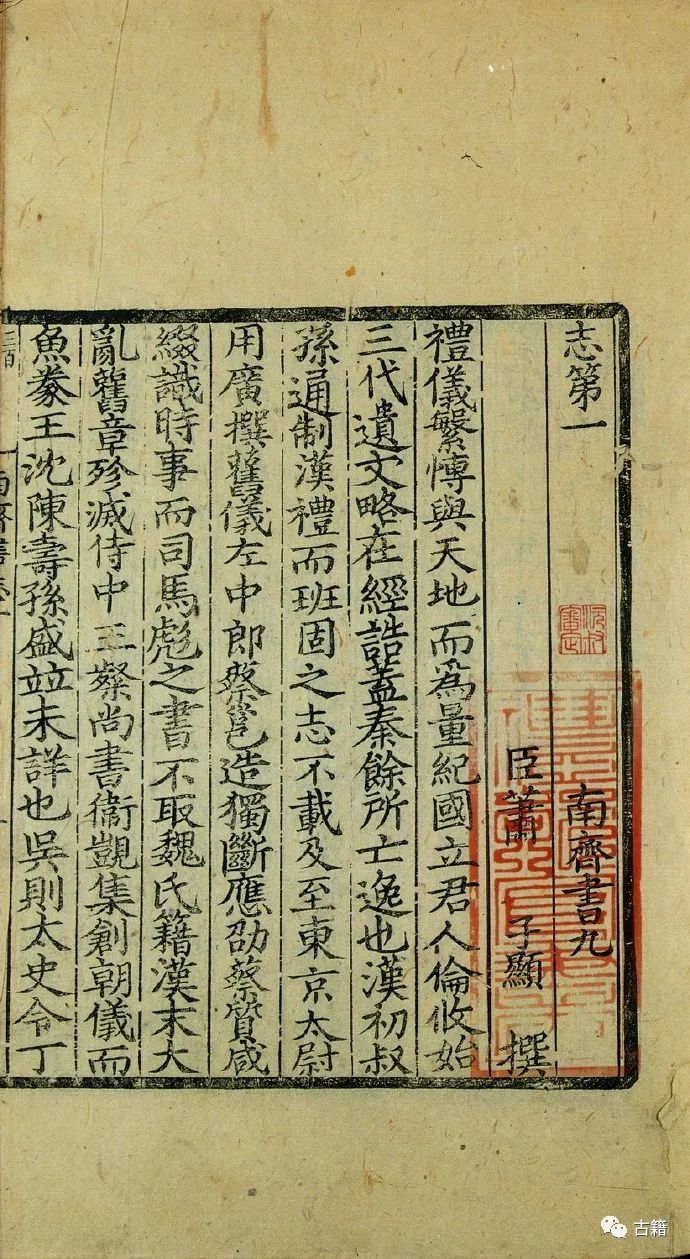 志第一　南齊書九
臣蕭　子顯　撰
禮儀繁博與天地而爲量紀國立君人倫攸始
三代遺文略在經誥蓋秦餘所亡逸也漢初叔
孫通制漢禮而班固之志不載及至東京太尉
胡廣撰舊儀左中郎蔡邕造獨斷應劭蔡質咸
綴識時事而司馬彪之書不取魏氏籍漢末大
亂舊章殄滅侍中王粲尚書衛覬集創朝儀而
魚豢王沈陳壽孫盛竝未詳也吳則太史令丁
古籍